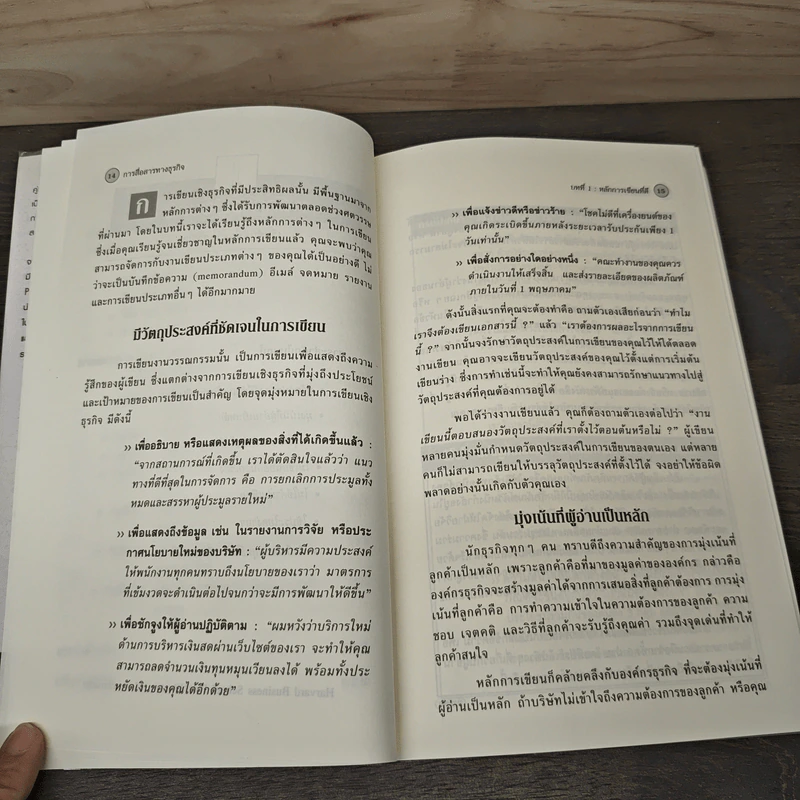 14 การสื่อสารทางธุรกิจ
การเขียนเชิงธุรกิจที่มีประสิทธิผลนั้น มีพื้นฐานมาจาก
หลักการต่างๆ ซึ่งได้รับการพัฒนาตลอดช่วงศตวรรษ
ที่ผ่านมา โดยในบทนี้เราจะได้เรียนรู้ถึงหลักการต่างๆ ในการเขียน
ซึ่งเมื่อคุณเรียนรู้จนเชี่ยวชาญในหลักการเขียนแล้ว คุณจะพบว่าคุณ
สามารถจัดการกับงานเขียนประเภทต่างๆ ของคุณได้เป็นอย่างดี ไม่
ว่าจะเป็นบันทึกข้อความ (memorandum) อีเมล์ จดหมาย รายงาน
และการเขียนประเภทอื่นๆ ได้อีกมากมาย
มีวัตถุประสงค์ที่ชัดเจนในการเขียน
การเขียนงานวรรณกรรมนั้น เป็นการเขียนเพื่อแสดงถึงความ
รู้สึกของผู้เขียน ซึ่งแตกต่างจากการเขียนเชิงธุรกิจที่มุ่งถึงประโยชน์
และเป้าหมายของการเขียนเป็นสำคัญ โดยจุดมุ่งหมายในการเขียนเชิง
ธุรกิจ มีดังนี้
›› เพื่ออธิบาย หรือแสดงเหตุผลของสิ่งที่ได้เกิดขึ้นแล้ว :
“จากสถานการณ์ที่เกิดขึ้น เราได้ตัดสินใจแล้วว่า แนว
ทางที่ดีที่สุดในการจัดการ คือ การยกเลิกการประมูลทั้ง
หมดและสรรหาผู้ประมูลรายใหม่”
›› เพื่อแสดงถึงข้อมูล เช่น ในรายงานการวิจัย หรือประ
กาศนโยบายใหม่ของบริษัท : “ผู้บริหารมีความประสงค์
ให้พนักงานทุกคนทราบถึงนโยบายของเราว่า มาตรการ
ที่เข้มงวดจะดำเนินต่อไปจนกว่าจะมีการพัฒนาให้ดีขึ้น”
›› เพื่อชักจูงให้ผู้อ่านปฏิบัติตาม : “ผมหวังว่าบริการใหม่
ด้านการบริหารเงินสดผ่านเว็บไซต์ของเรา จะทำให้คุณ
สามารถลดจำนวนเงินทุนหมุนเวียนลงได้ พร้อมทั้งประ
หยัดเงินของคุณได้อีกด้วย”
บทที่ 1 : หลักการเขียนที่ดี 15
›› เพื่อแจ้งข่าวดีหรือข่าวร้าย : “โชคไม่ดีที่เครื่องยนต์ของ
คุณเกิดระเบิดขึ้นภายหลังระยะเวลารับประกันเพียง 1
วันเท่านั้น”
›› เพื่อสั่งการอย่างใดอย่างหนึ่ง : “คณะทำงานของคุณควร
ดำเนินงานให้เสร็จสิ้น และส่งรายละเอียดของผลิตภัณฑ์
ภายในวันที่ 1 พฤษภาคม”
ดังนั้นสิ่งแรกที่คุณจะต้องทำคือ ถามตัวเองเสียก่อนว่า “ทำไม
เราจึงต้องเขียนเอกสารนี้ ?” แล้ว “เราต้องการผลอะไรจากการเขียน
นี้ ?” จากนั้นจงรักษาวัตถุประสงค์ในการเขียนของคุณไว้ให้ได้ตลอด
งานเขียน คุณอาจจะเขียนวัตถุประสงค์ของคุณไว้ตั้งแต่การเริ่มต้น
เขียนร่าง ซึ่งการทำเช่นนี้จะทำให้คุณยังคงสามารถรักษาแนวทางไปสู่
วัตถุประสงค์ที่คุณต้องการอยู่ได้
พอได้ร่างงานเขียนแล้ว คุณก็ต้องถามตัวเองต่อไปว่า “งาน
เขียนนี้ตอบสนองวัตถุประสงค์ที่เราตั้งไว้ตอนต้นหรือไม่ ?” ผู้เขียน
หลายคนมุ่งมั่นกำหนดวัตถุประสงค์ในการเขียนของตนเอง แต่หลาย
คนก็ไม่สามารถเขียนให้บรรลุวัตถุประสงค์ที่ตั้งไว้ได้ จงอย่าให้ข้อผิด
พลาดอย่างนั้นเกิดกับตัวคุณเอง
มุ่งเน้นที่ผู้อ่านเป็นหลัก
นักธุรกิจทุกๆ คน ทราบดีถึงความสำคัญของการมุ่งเน้นที่
ลูกค้าเป็นหลัก เพราะลูกค้าคือที่มาของมูลค่าขององค์กร กล่าวคือ
องค์กรธุรกิจจะสร้างมูลค่าได้จากการเสนอสิ่งที่ลูกค้าต้องการ การมุ่ง
เน้นที่ลูกค้าคือ การทำความเข้าใจในความต้องการของลูกค้า ความ
ชอบ เจตคติ และวิธีที่ลูกค้าจะรับรู้ถึงคุณค่า รวมถึงจุดเด่นที่ทำให้
ลูกค้าสนใจ
หลักการเขียนก็คล้ายคลึงกับองค์กรธุรกิจ ที่จะต้องมุ่งเน้นที่
ผู้อ่านเป็นหลัก ถ้าบริษัทไม่เข้าใจถึงความต้องการของลูกค้า หรือคุณ